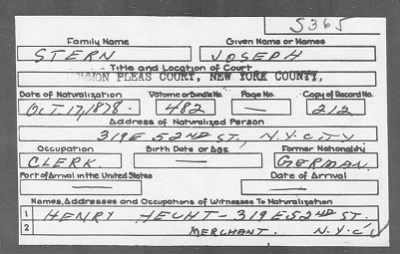 S365
Family Name Given Name or Names
STERN JOSEPH
Title and Location of Court
COMMON PLEAS COURT, NEW YORK COUNTY,
Date of Naturalization Volume or Bundle No. Page No. Copy of Record No.
OCT. 17, 1878. 482 — 212
Address of Naturalized Person
319 E 52ND ST., N.Y. CITY
Occupation Birth Date or Age Former Nationality
CLERK. — GERMAN
Port of Arrival in the United States Date of Arrival
— —
Names, Addresses and Occupations of Witnesses To Naturalization
1 HENRY HECHT - 319 E 52ND ST.
2 MERCHANT. N.Y.C'Y